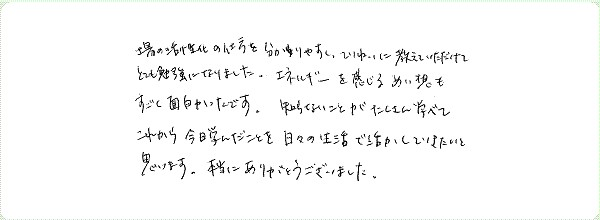 場の活性化の仕方を分かりやすく、ていねいに教えていただけて
とても勉強になりました。エネルギーを感じるめい想も
すごく面白かったです。知らないことがたくさん学べて
これから今日学んだことを日々の生活で活かしていきたいと
思います。本当にありがとうございました。